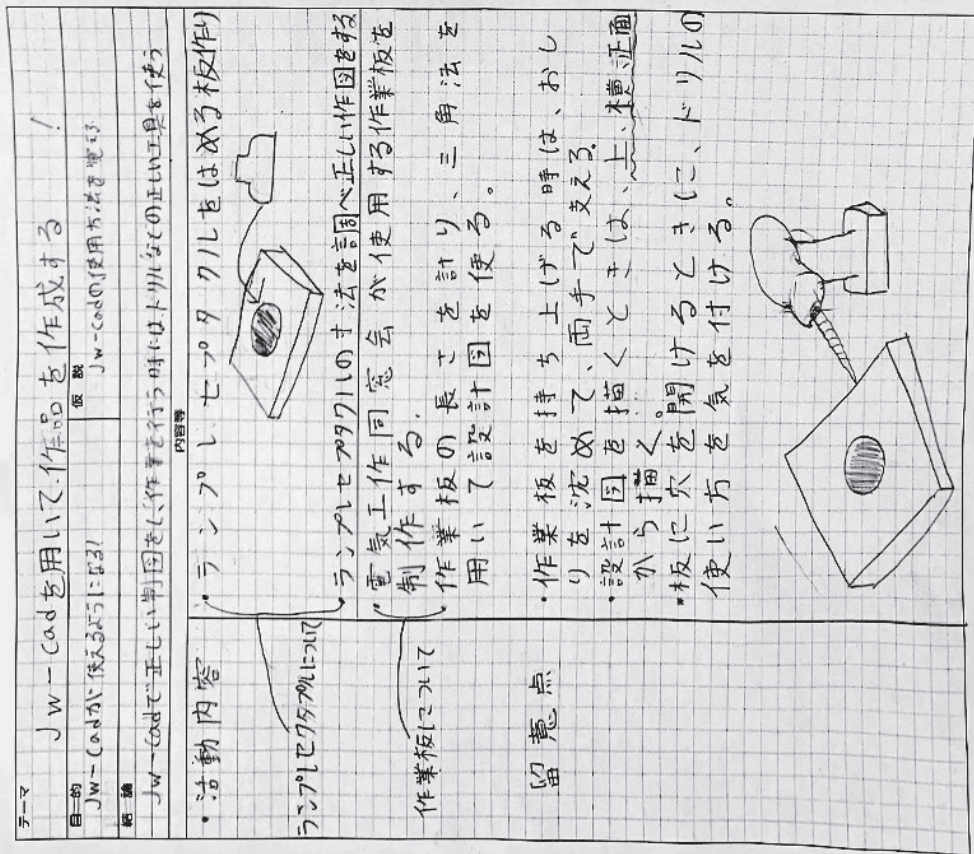 テーマ
Jw-cadを用いて作品を作成する!
目的
Jw-cadが使えるようになる!
仮説
Jw-cadの使用方法を覚える
結論
Jw-cadで正しい製図をし、作業を行う時にはドリルなどの正しい工具を使う
内容等
・活動内容
・ランプレセプタクルをはめる板作り
ランプレセクタプルについて
・ランプレセプタクルの寸法を調べ正しい作図をする
・電気工作同窓会が使用する作業板を
制作する.
作業板について
・作業板の長さを計り、三角法を
用いて設計図を使る。
留意点
・作業板を持ち上げる時は、おし
りを沈めて、両手で支える。
・設計図を描くときは、上、横、正面
から描く。
・板に穴を開けるときに、ドリルの
使い方を気を付ける。